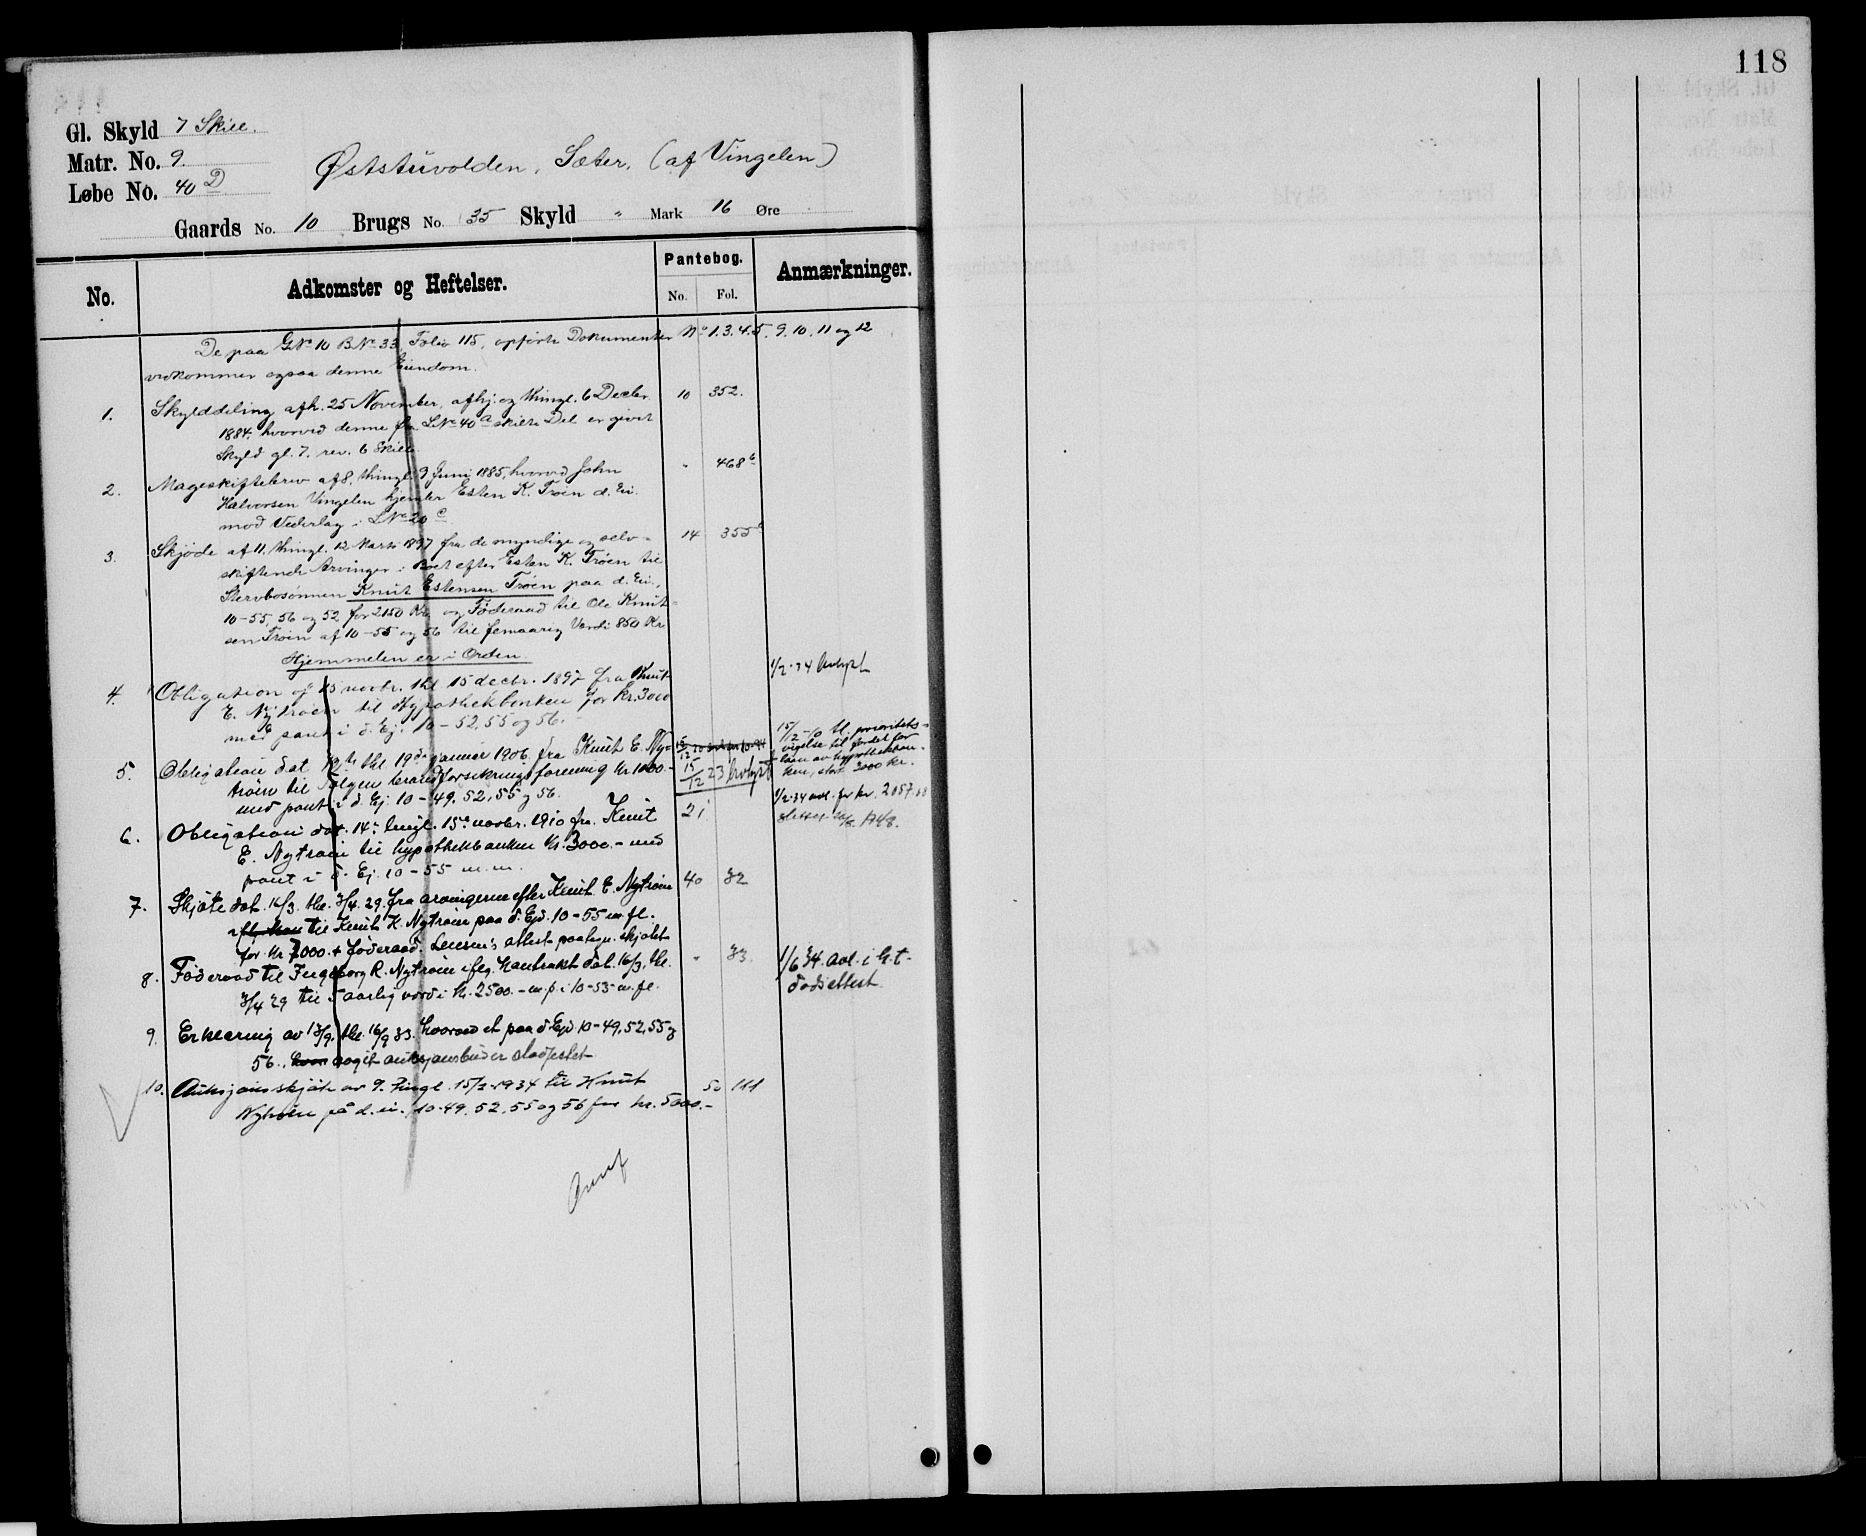 118
Gl. Skyld 7 Skill.
Matr. No. 9.
Løbe No. 40 D
Øststuvolden, Sæter. (af Vingelen)
Gaards No. 10 Brugs No. 35 Skyld " Mark 16 Øre
No. Adkomster og Heftelser. Pantebog. Anmærkninger.
No. Fol.
De paa GNo 10 BNo 33, Folio 115, opførte Dokumenter No 1.3.4.5. 9. 10. 11 og 12
vedkommer ogsaa denne Eiendom.
1. Skylddeling afh. 25 November, afhj. og thingl. 6 Decbr 10 352.
1884, hvorved denne fra LNo 40 a skilte Del er givet
Skyld gl. 7. rev. 6 Skill.
2. Mageskiftebrev af 8, thingl. 9 Juni 1885, hvorved John " 468 b
Halvorsen Vingelen hjemler Esten K. Trøen d. Ei.
mod Vederlag i LNo 20 c
3. Skjøde af 11. thingl. 12 Marts 1897 fra de myndige og selv- 14 355 b
skiftende Arvinger i Boet efter Esten K. Trøen til
Stervbosønnen Knut Estensen Trøen paa d. Ei.,
10-55, 56 og 52 for 2150 Kr. og Føderaad til Ole Knut-
sen Trøen af 10-55 og 56 til femaarig Værdi 850 Kr
Hjemmelen er i Orden.
4. Obligation af 15 novbr. thl 15 decbr. 1897 fra Knut 1/2-34 Avlyst
E. Nytrøen til Hypothekbanken for kr. 3000
med pant i d. Ej. 10-52, 55 og 56.
5. Obligation dat. thl 19de januar 1906 fra Knut E. Ny- 15/12 23 Avlyst
trøen til Tolgen brandforsikringsforening kr 1000.-
med pant i d. Ej. 10-49, 52, 55 og 56.
15/12-10 tl. prioritets-
vigelse til fordel for
laan av hypothekban-
ken, stort 3000 kr.
6. Obligation dat. 14de tingl. 15de novbr. 1910 fra Knut 21
E. Nytrøen til hypothekbanken kr. 3000.- med
pant i d. Ej. 10-55 m. m.
1/2-34 avl. for kr. 2057.
slettet 1948.
7. Skjøte dat. 16/3. thl. 3/4. 29. fra arvingerne efter Knut E. Nytrøen 40 82
til Knut K. Nytrøen paa d. Ejd. 10-55 m. fl.
for kr 7000.+ føderaad. Lensm's attest paategn. skjøtet
8. Føderaad til Ingeborg R. Nytrøen iflg. kontrakt dat. 16/3, thl. " 83. 1/6 34. avl. i h. t.
3/4 29 til 5 aarlig værdi kr. 2500.- m. p. i 10-55 m. fl. dødsattest.
9. Erklæring av 13/9. thl. 16/9 33. hvorved et paa d. Ejd. 10-49, 52, 55 og
56. avgit auksjonsbud er stadfestet
10. Auksjonsskjøte av 9. tingl. 15/2-1934 til Knut 50 111
Nytrøen på d. ei. 10-49, 52, 55 og 56 for kr. 5000.-